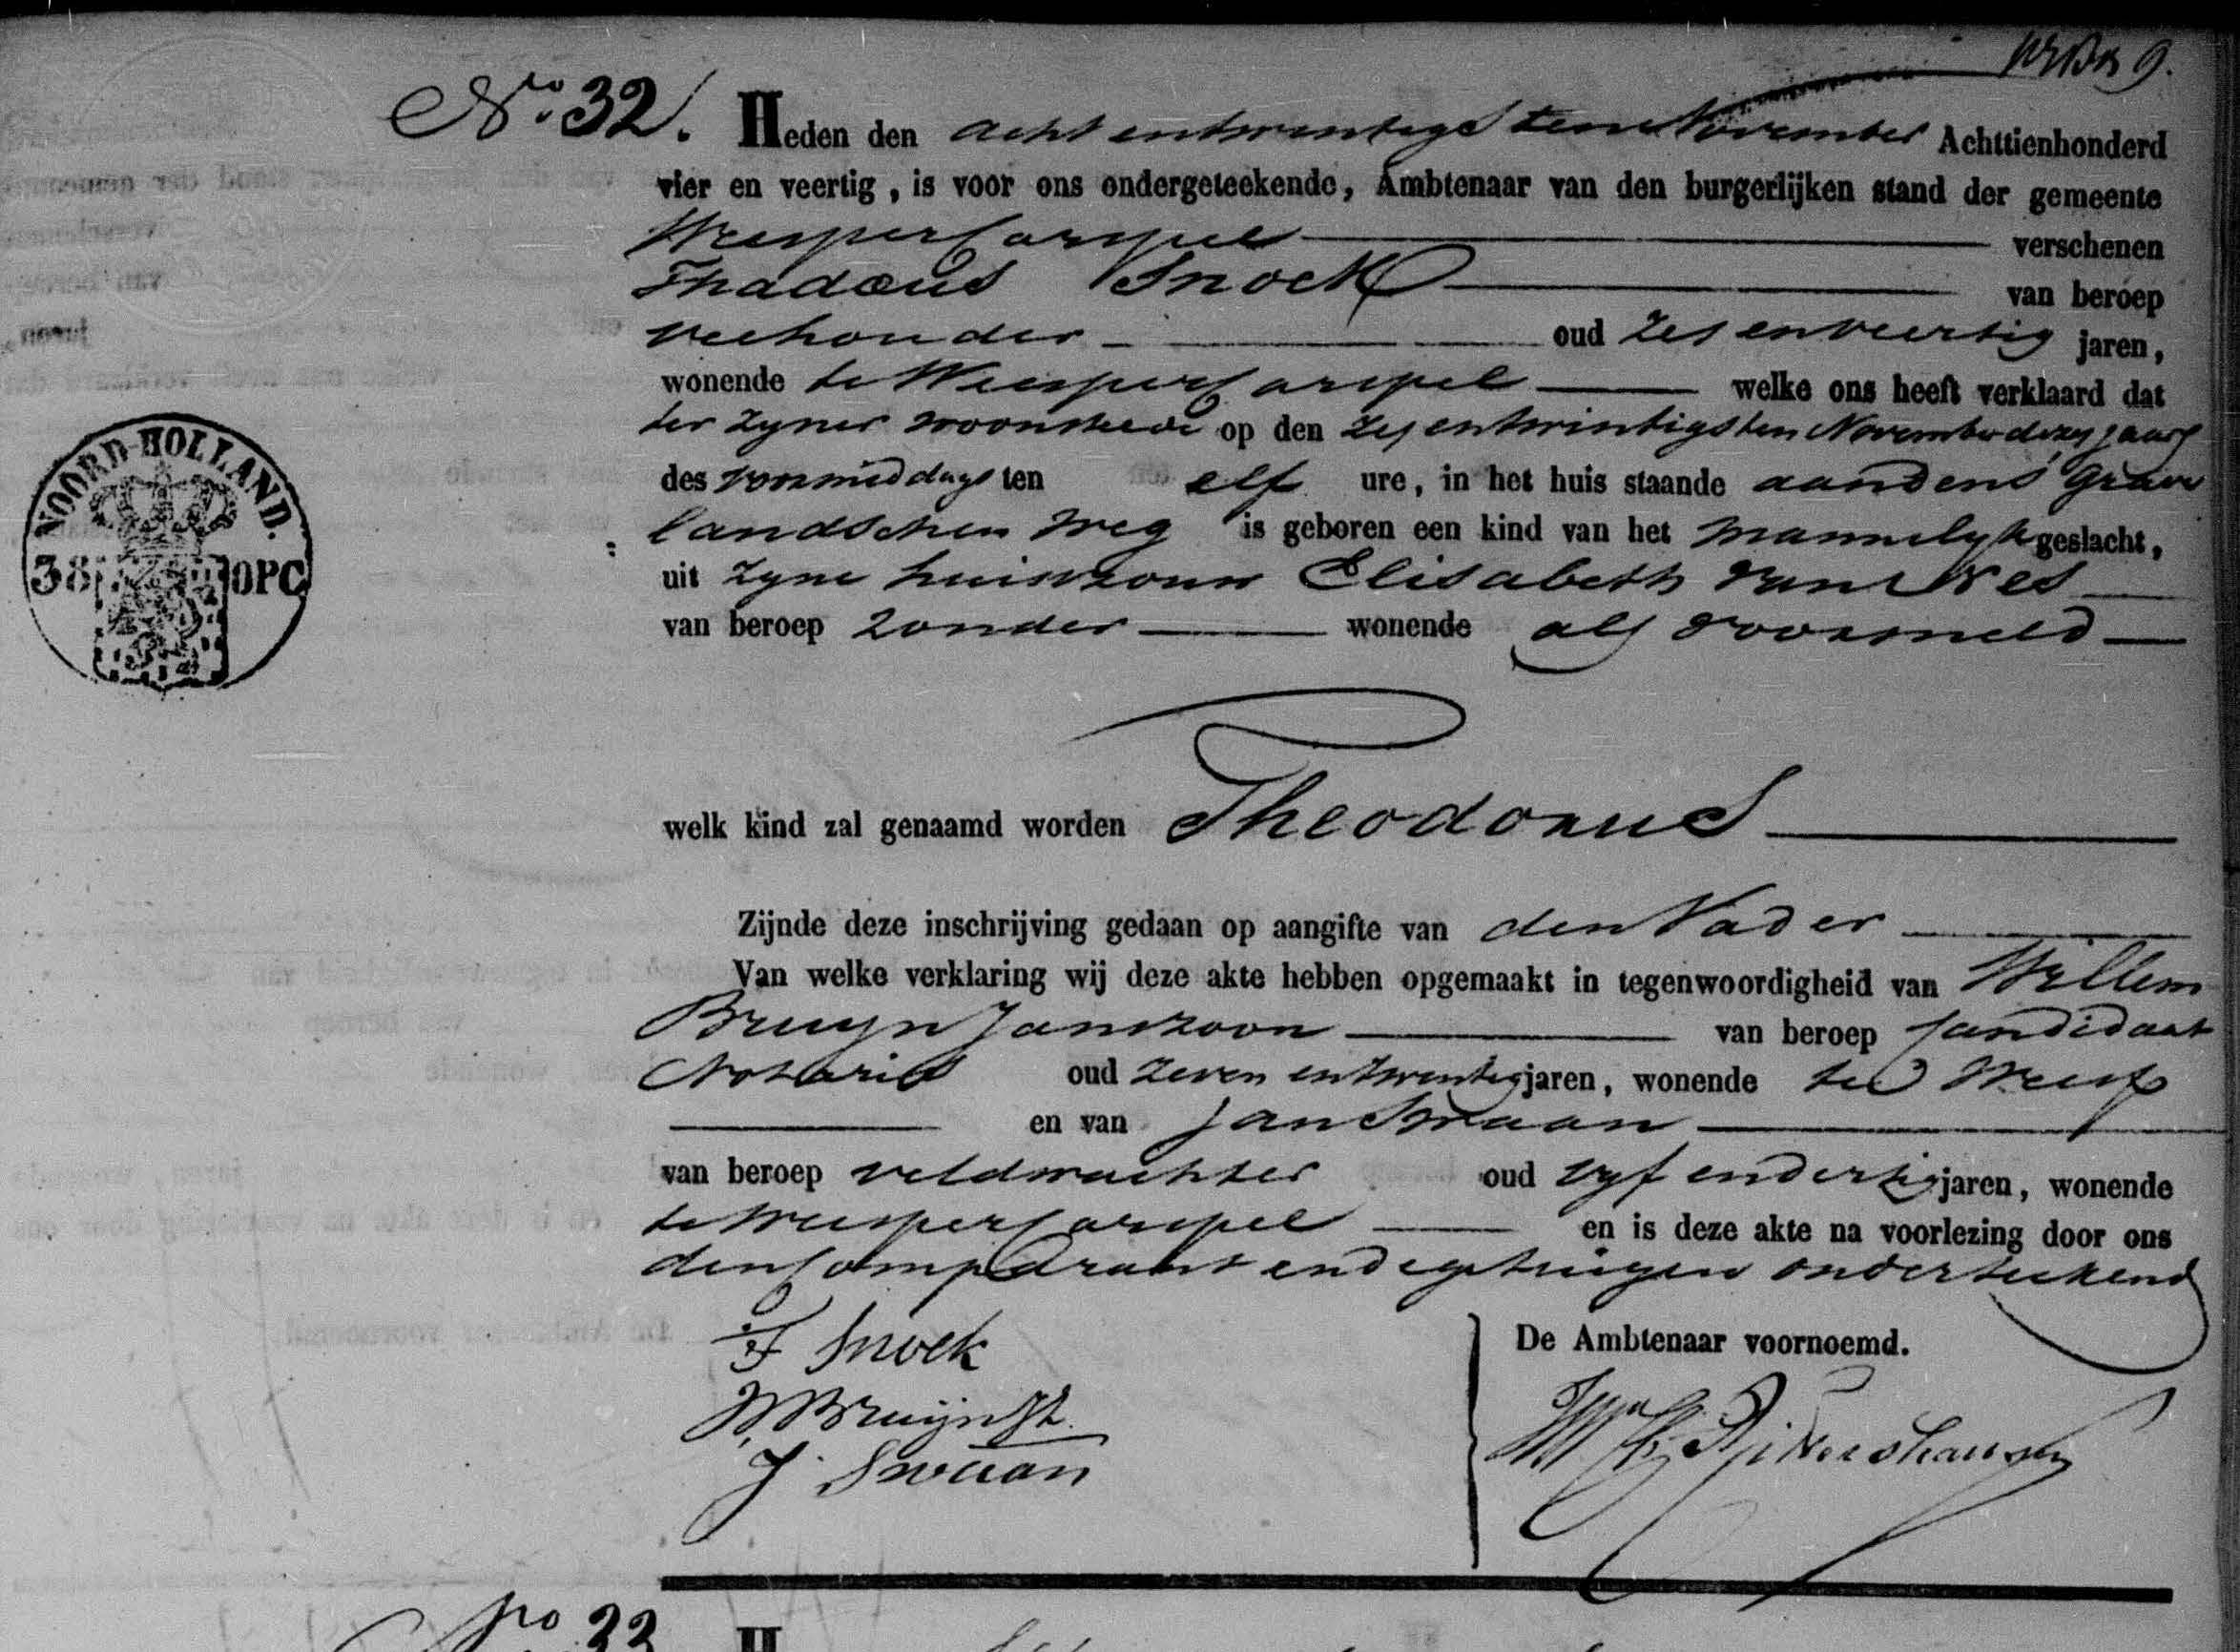 No. 32. Heden den acht entwintigsten November Achttienhonderd
vier en veertig, is voor ons ondergeteekende, Ambtenaar van den burgerlijken stand der gemeente
Weespercarspel verschenen
Thadæus Snoek van beroep
veehouder oud zes en veertig jaren,
wonende te Weespercarspel welke ons heeft verklaard dat
ter zyner woonstede op den zes entwintigsten November dezes jaars
des voormiddags ten elf ure, in het huis staande aan den s Grave
landschen weg is geboren een kind van het mannelyk geslacht,
uit zyne huisvrouw Elisabeth van Nes
van beroep zonder wonende als voormeld
welk kind zal genaamd worden Theodorus
Zijnde deze inschrijving gedaan op aangifte van den Vader
Van welke verklaring wij deze akte hebben opgemaakt in tegenwoordigheid van Willem
Bruyn Janszoon van beroep Candidaat
Notaris oud zeven entwintig jaren, wonende te Weesp
en van Jan Swaan
van beroep veldwachter oud vyf endertig jaren, wonende
te Weespercarspel en is deze akte na voorlezing door ons
den Comparant en de getuigen onderteekend
T Snoek
De Ambtenaar voornoemd.
W. Bruijn Jz.
J. Swaan
NOORD-HOLLAND.
38 OPC
No 33